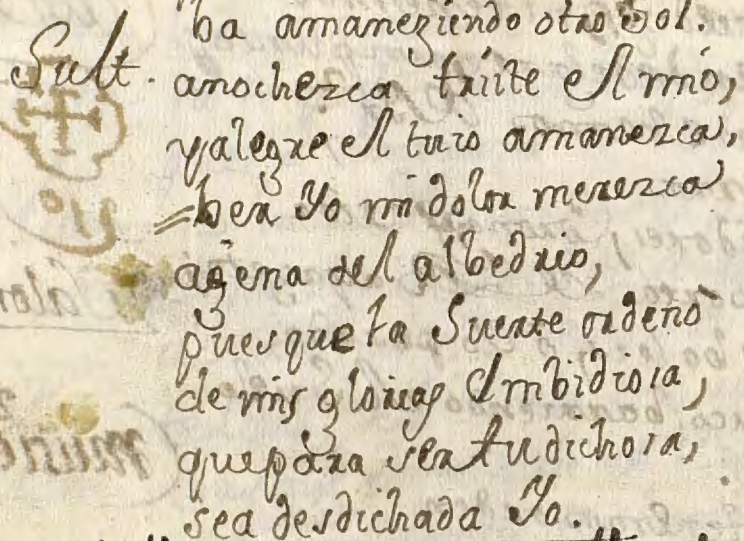 ba amaneziendo otro Sol.
Sult. anochezca triste el mio,
y alegre el tuio amanezca,
ber Yo mi dolor merezca
agena del albedrio,
pues que la Suerte ordenò
de mis glorias Embidiosa,
que para ser tu dichosa,
sea desdichada Yo.